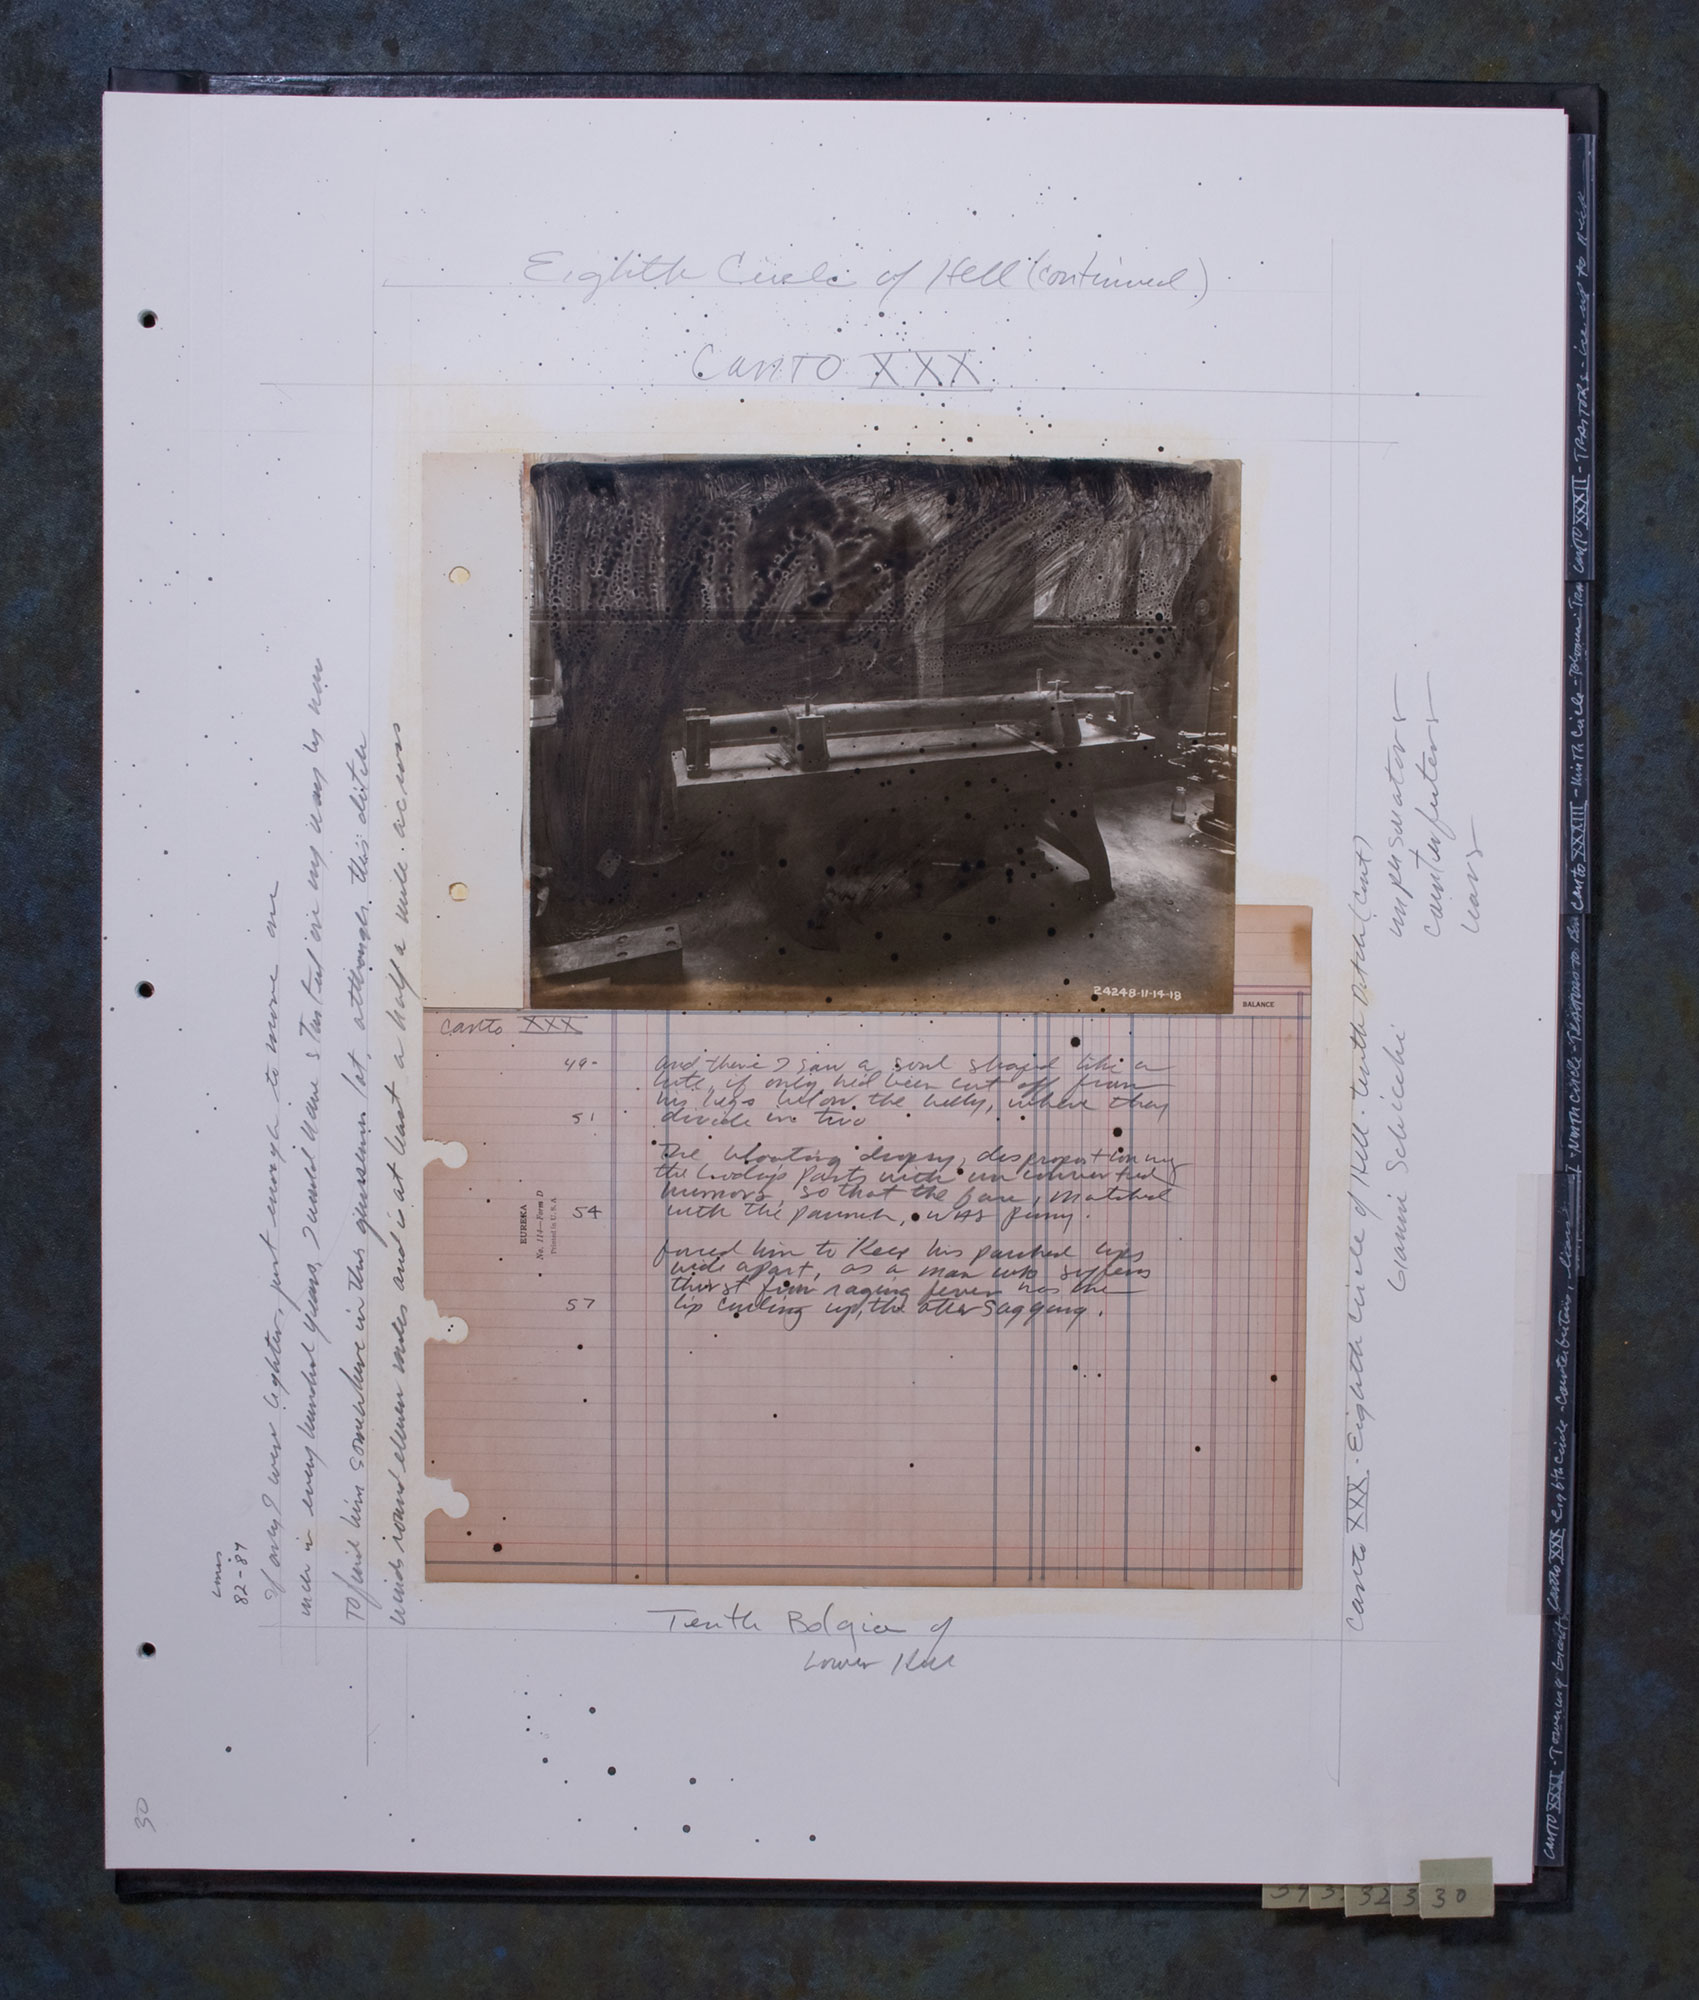 Eighth Circle of Hell (continued)
Canto XXX
24248-11-14-18
BALANCE
Canto XXX
49-
and there I saw a soul shaped like a
lute, if only he'd been cut off from
his legs below the belly, where they
51
divide in two
The bloating dropsy, disproportioning
the body's parts with unconverted
humors, so that the face, matched
54
with the paunch, was puny.
forced him to keep his parched lips
wide apart, as a man who suffers
thirst from raging fever has one
57
lip curling up, the other sagging.
EUREKA
No. 114—Form D
Printed in U.S.A
Tenth Bolgia of
Lower Hell
Lines
82-87
If only I were lighter, just enough to move one
inch in every hundred years, I would have started on my way by now
To find him somewhere in this gruesome lot, although this ditch
winds round eleven miles and is at least a half a mile across
Canto XXX - Eighth Circle of Hell - tenth Ditch (cont)
Gianni Schicchi
impersonators
counterfeiters
liars
Canto XXXII - TRAITORS - ice up to
Canto XXXIII - Ninth Circle - Ptolomea
Ninth Circle
Canto XXXI - Towering Giants
Canto XXX Eighth Circle - Counterfeiters, liars
30
32
3
30